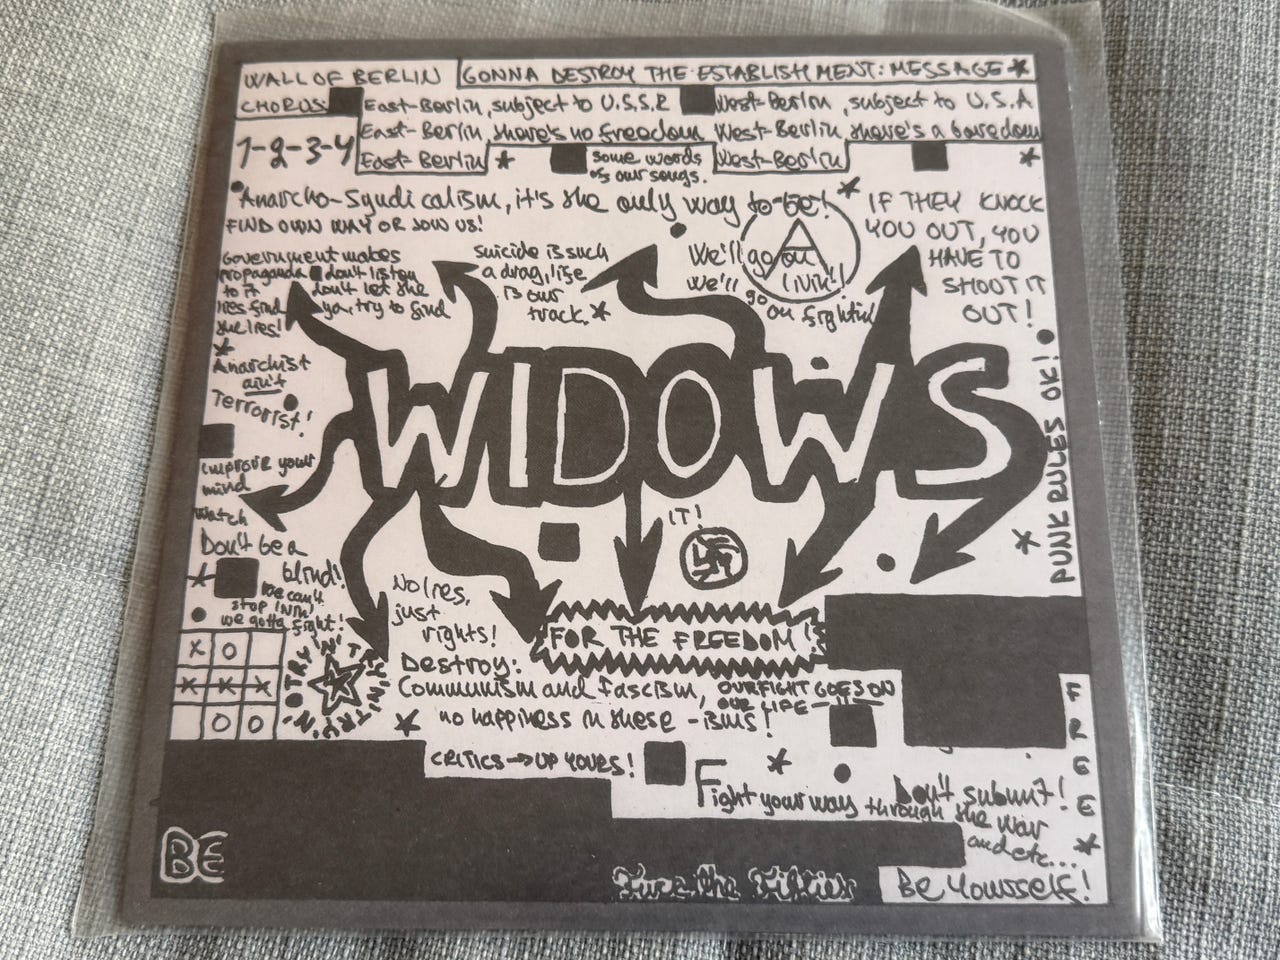 WALL OF BERLIN
GONNA DESTROY THE ESTABLISHMENT: MESSAGE *
CHORUS
East-Berlin, subject to U.S.S.R
West-Berlin, subject to U.S.A
1-2-3-4
East-Berlin there's no freedom
West-Berlin there's a boredom
East-Berlin
West-Berlin
some words
of our songs.
Anarcho-Syndicalism, it's the only way to be!
FIND OWN WAY OR JOIN US!
IF THEY KNOCK
YOU OUT, YOU
HAVE TO
SHOOT IT
OUT!
Government makes
propaganda
to it
lies find
the lies!
don't listen
don't let the
ya, try to find
suicide is such
a drag, life
is our
track. *
We'll go on
livin'!
we'll go
on fightin'
A
Anarchist
ain't
Terrorist!
WIDOWS
PUNK RULES OK!
improve your
mind
watch
IT!
Don't be a
blind!
we can't
stop livin'
we gotta fight!
No lies,
just
rights!
FOR THE FREEDOM!
TRYIN' TRYIN' TRYIN'
X O
X X X
O O
Destroy:
Communism and fascism,
no happiness in these -isms!
OUR FIGHT GOES ON
OUR LIFE
CRITICS → UP YOURS!
FREE *
Fight your way through the war
and etc...
Don't submit!
BE
Fuck the Fifties
Be Yourself!